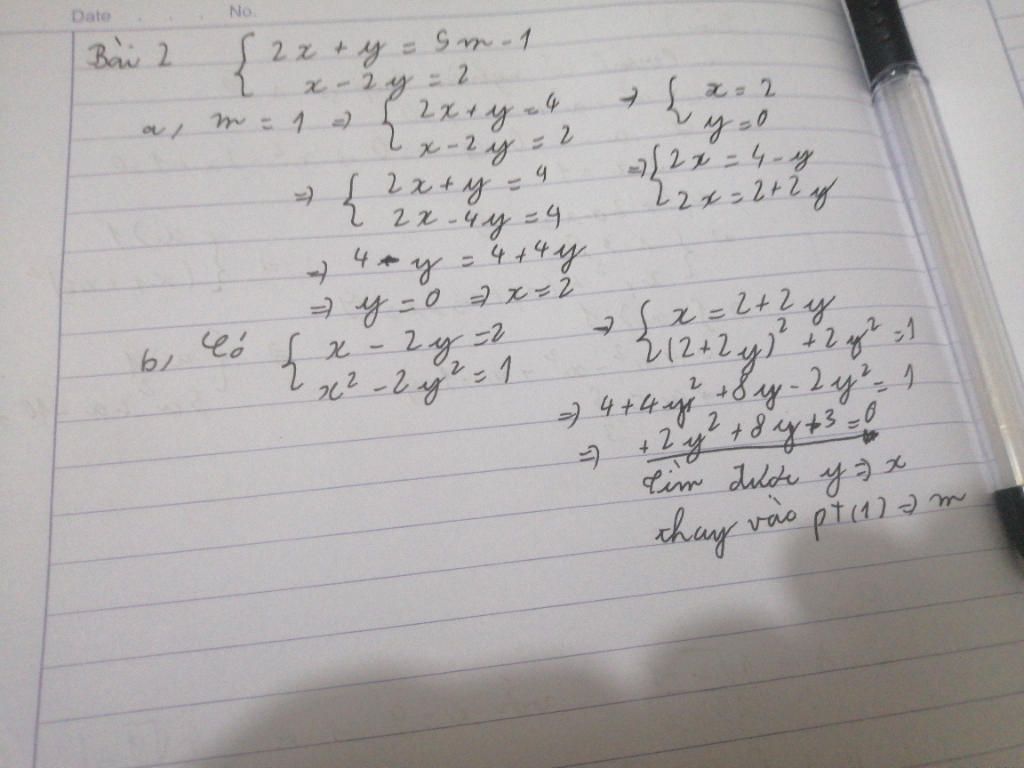 Date . . . No.
Bài 2 { 2x + y = 5m - 1
x - 2y = 2
a, m = 1 => { 2x + y = 4 => { x = 2
x - 2y = 2 y = 0
=> { 2x + y = 4 => { 2x = 4 - y
2x - 4y = 4 2x = 2 + 2y
=> 4 - y = 4 + 4y
=> y = 0 => x = 2
b, Có { x - 2y = 2 => { x = 2 + 2y
x² - 2y² = 1 (2 + 2y)² + 2y² = 1
=> 4 + 4y² + 8y - 2y² = 1
=> + 2y² + 8y + 3 = 0
tìm được y => x
thay vào pt (1) => m